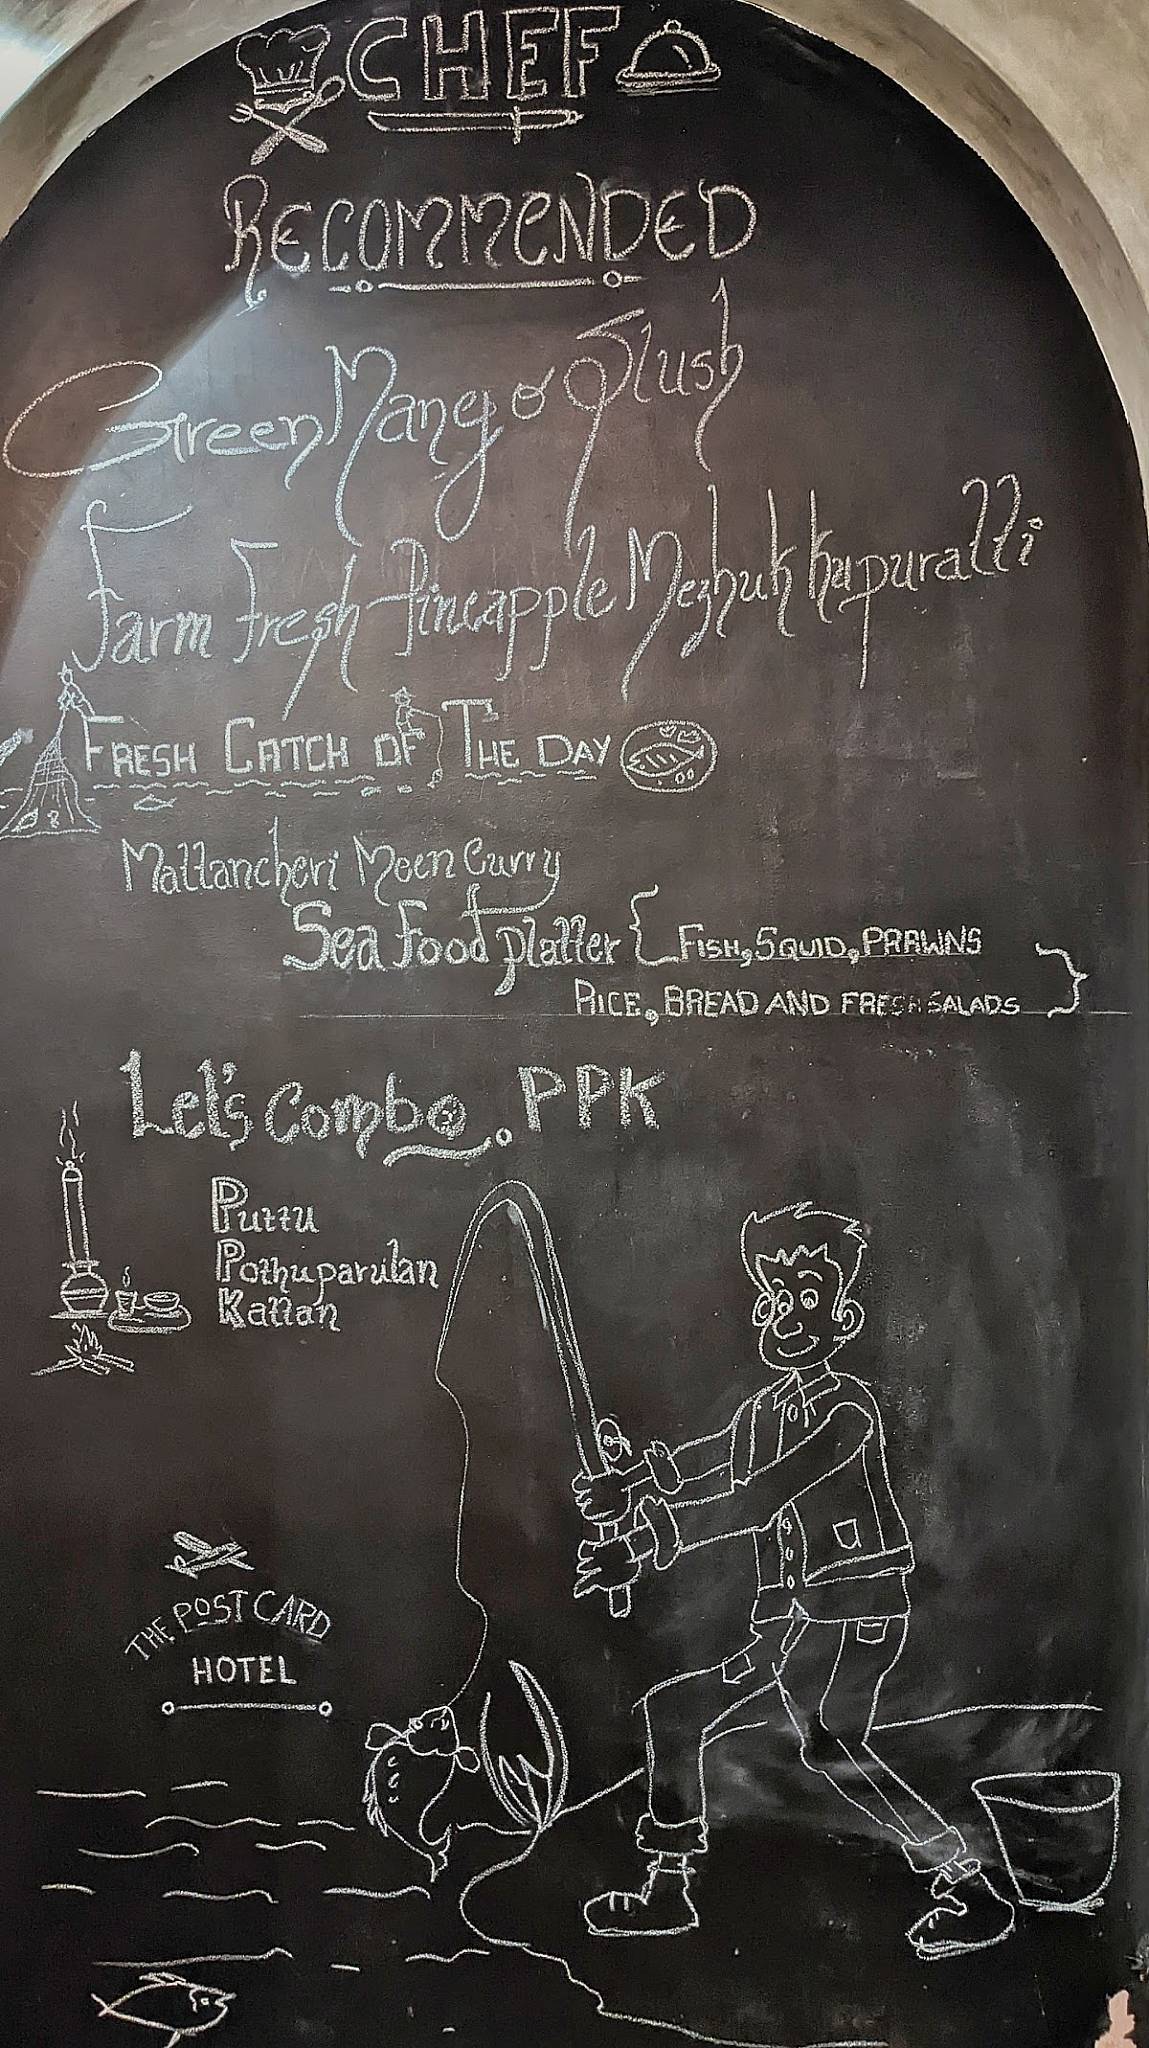 CHEF
RECOMMENDED
Green Mango Slush
Farm Fresh Pineapple Mezhukkupuratti
FRESH CATCH OF THE DAY
Mattancheri Meen Curry
Sea Food Platter { FISH, SQUID, PRAWNS
RICE, BREAD AND FRESH SALADS }
Let's Combo PPK
Puttu
Pothuparulan
Kattan
THE POSTCARD
HOTEL